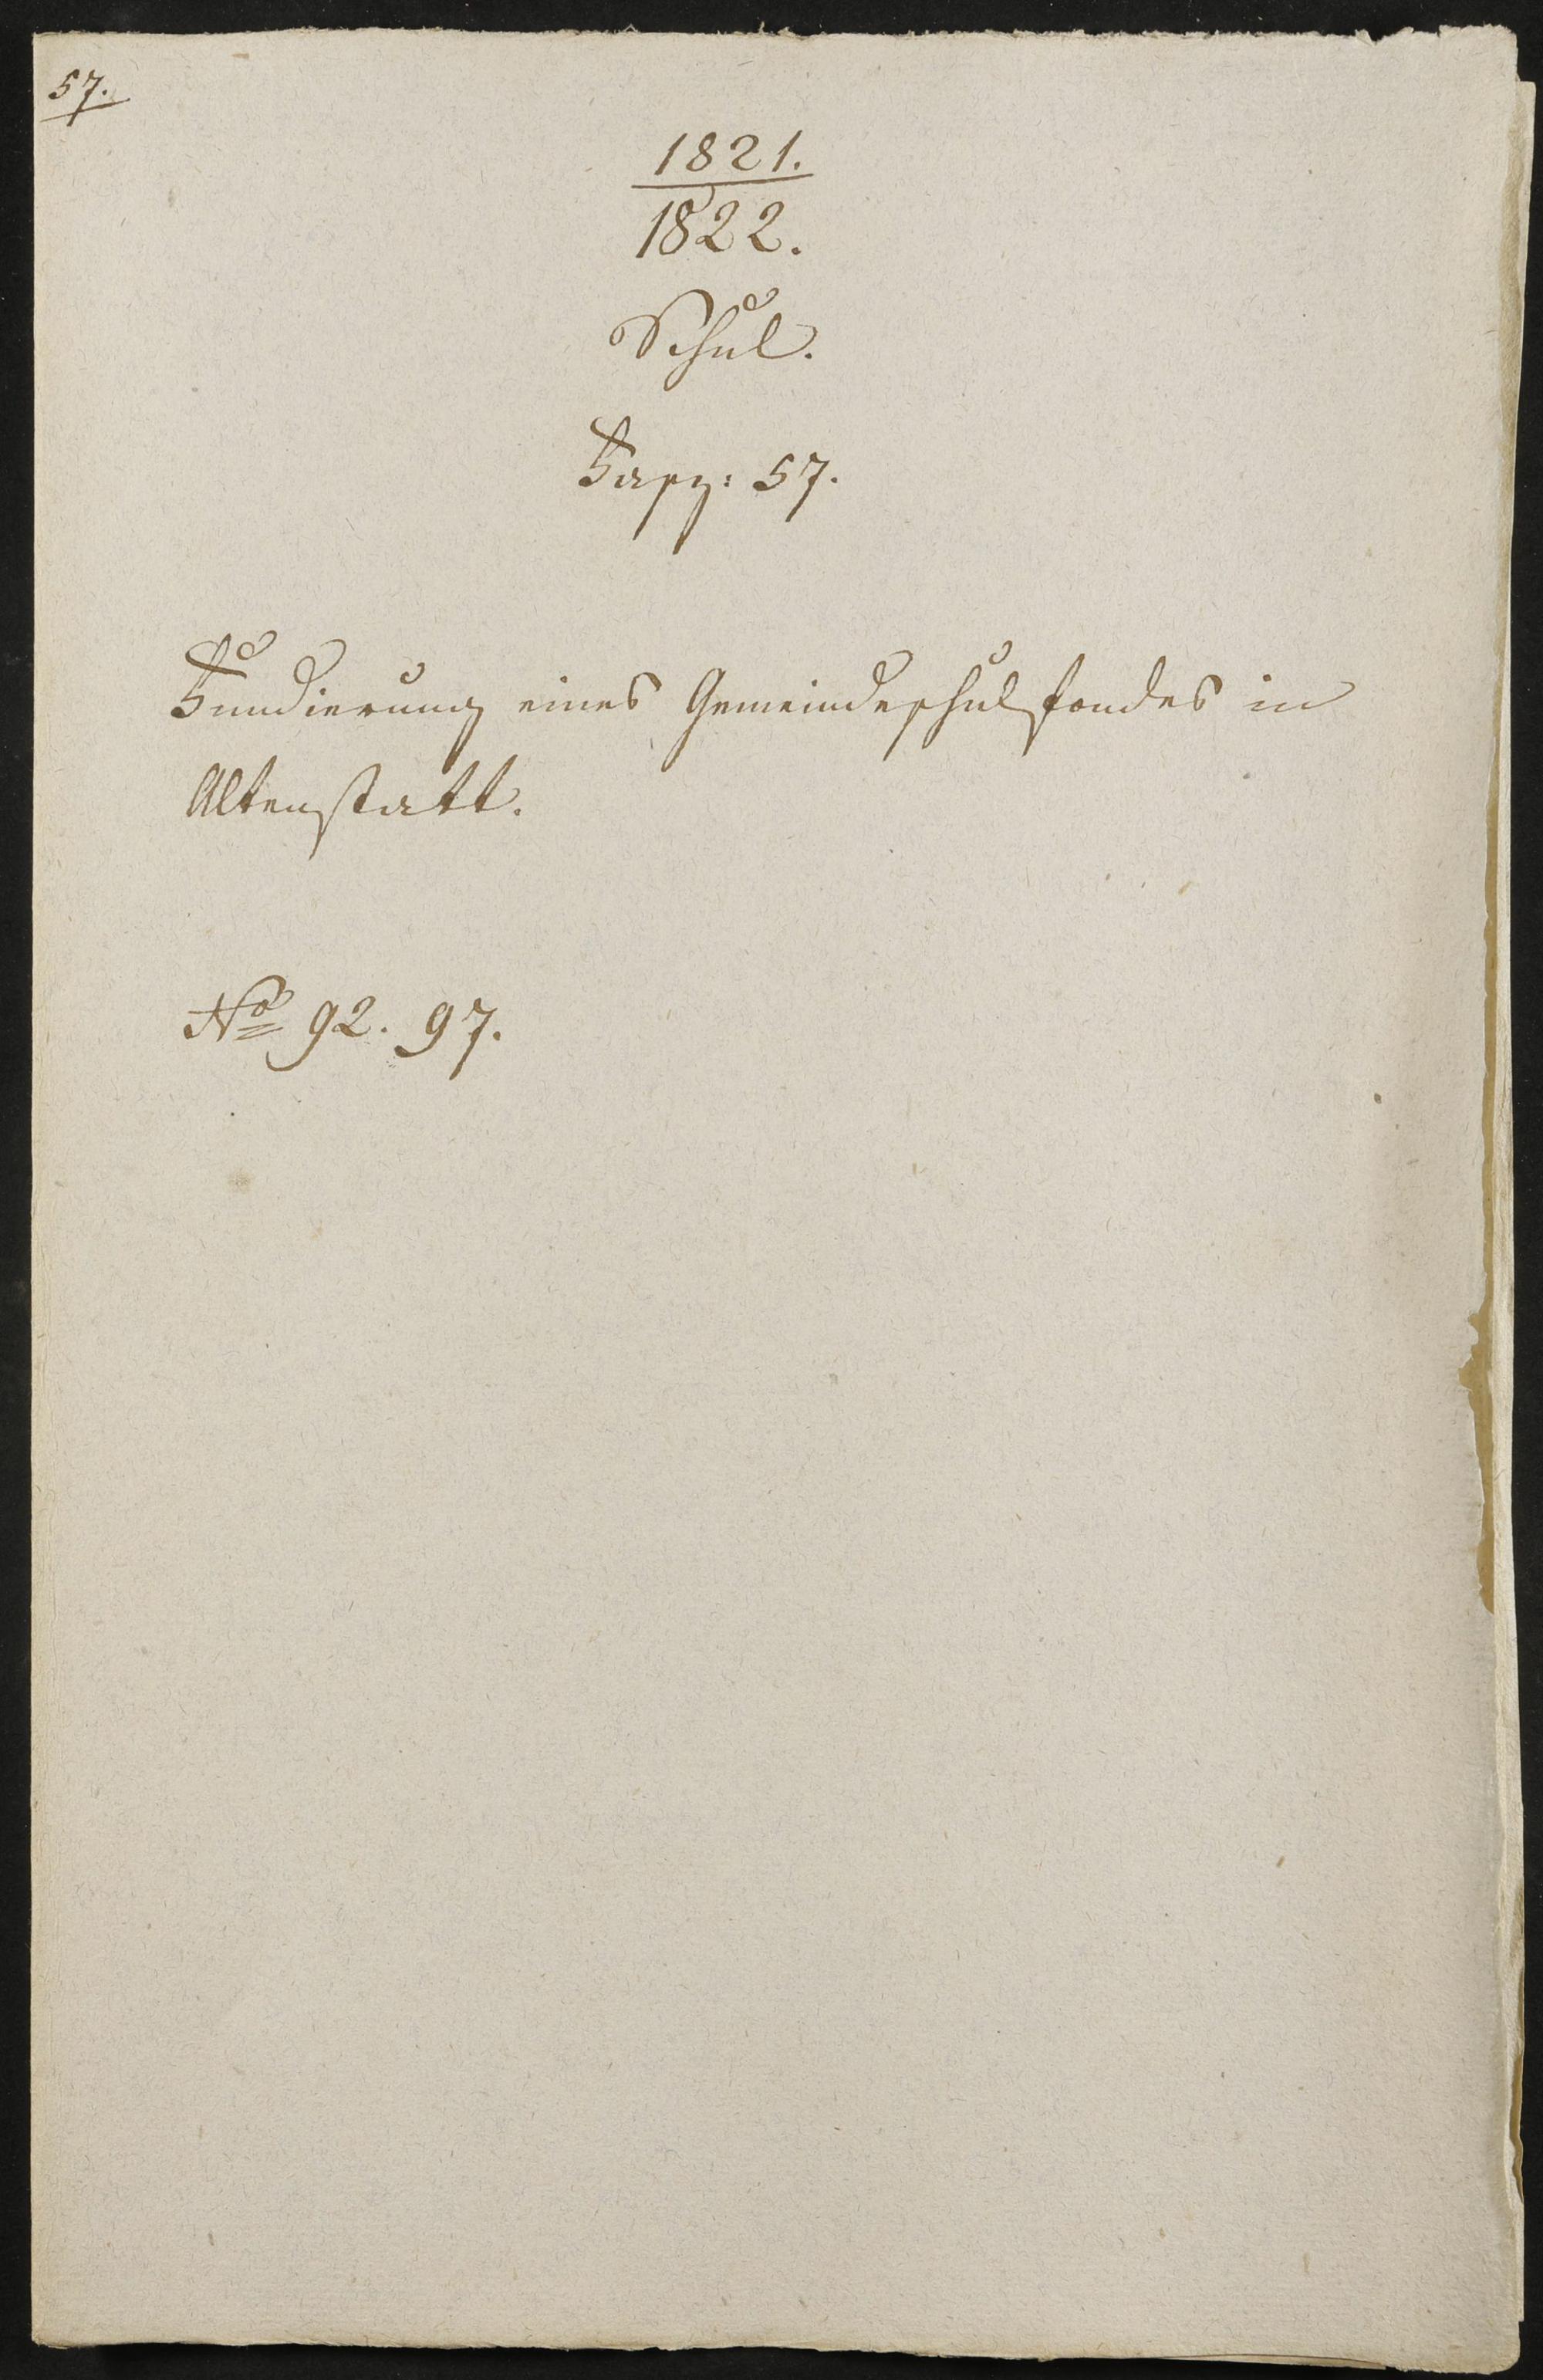 57.
1821.
1822.
Schul.
Fasz: 57.
Fundierung eines Gemeindeschulfondes in
Altenstatt.
No 92. 97.